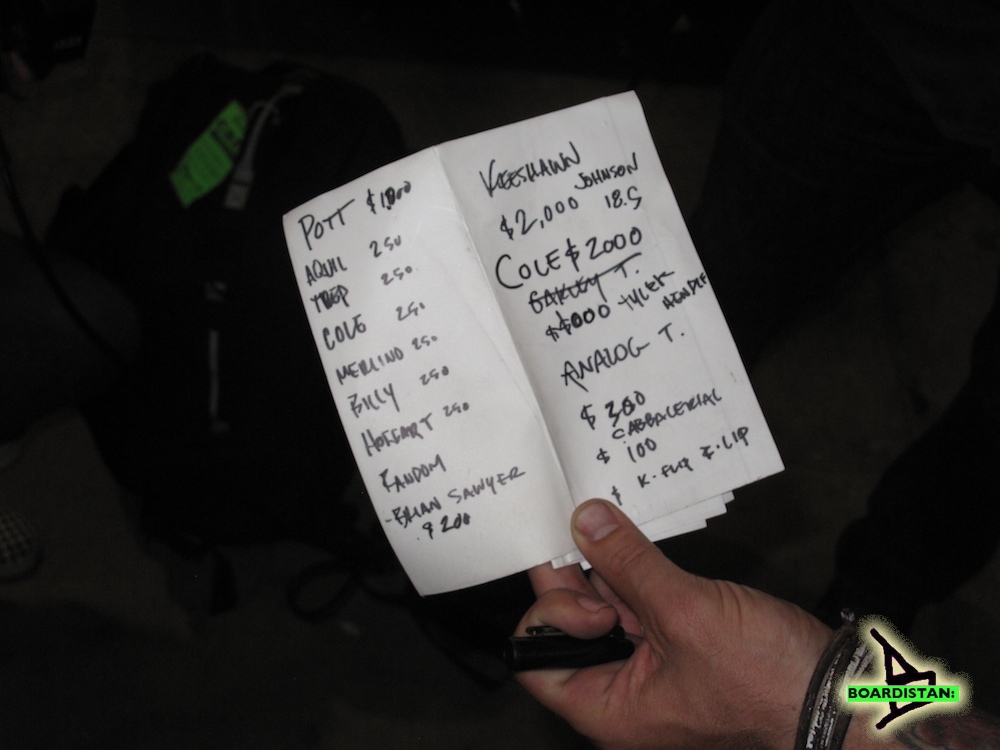 POTT $1,000
AQUIL 250
TREP 250
COLE 250
MERLINO 250
BILLY 250
HOFFART 250
RANDOM
-BRIAN SAWYER
$200
KEESHAWN
JOHNSON
$2,000 18.5
COLE $2000
OAKLEY T.
TYLER
ANALOG T.
$ 300
CABBALERIAL
$ 100
$ K-FLIP F-LIP
BOARDISTAN: